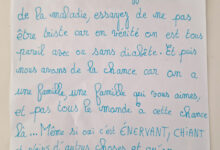 de la maladie, essayez de ne pas
être triste car en vérité on est tous
pareil avec ou sans diabète. Et puis
nous avons de la chance car on a
une famille, une famille qui vous aimes,
et pas tous le monde a cette chance
là... Même si oui c'est ÉNERVANT, CHIANT
d'autres choses